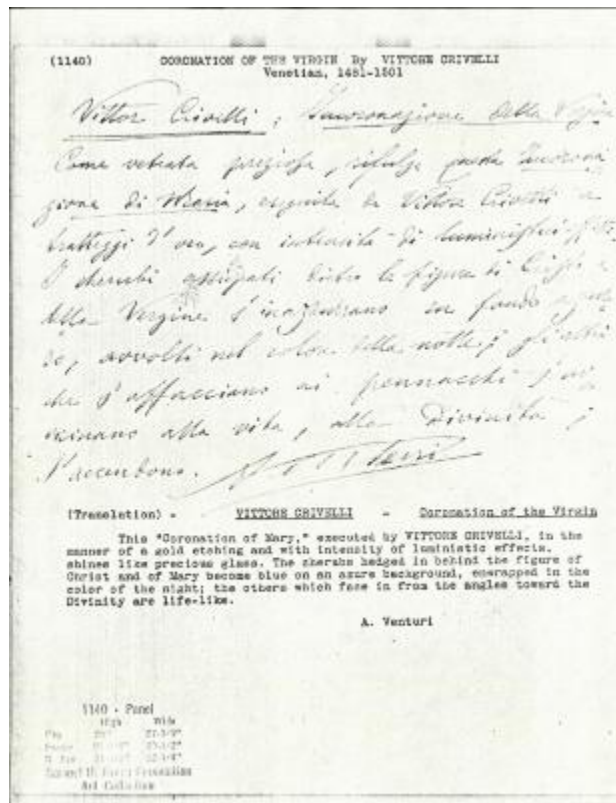 (1140) CORONATION OF THE VIRGIN By VITTORE CRIVELLI
Venetian, 1481-1501
Vittor Crivelli; Incoronazione della
Come vetrata preziosa, rifulge questa Incorona
zione di Maria, eseguita da Vittor Crivelli a
tratteggi d'oro, con intensità di
I cherubi dietro la figura di
della Vergine s'inazzurrano in fondo
avvolti nel color della notte; gli altri
che s'affacciano ai pennacchi
alla vita, alla Divinità,
s'accendono.
(Translation) - VITTORE CRIVELLI - Coronation of the Virgin
This "Coronation of Mary," executed by VITTORE CRIVELLI, in the
manner of a gold etching and with intensity of luministic effects,
shines like precious glass. The cherubs hedged in behind the figure of
Christ and of Mary become blue on an azure background, enwrapped in the
color of the night; the others which face in from the angles toward the
Divinity are life-like.
A. Venturi
1140 - Panel
High Wide
Samuel H. Kress Foundation
Art Collection